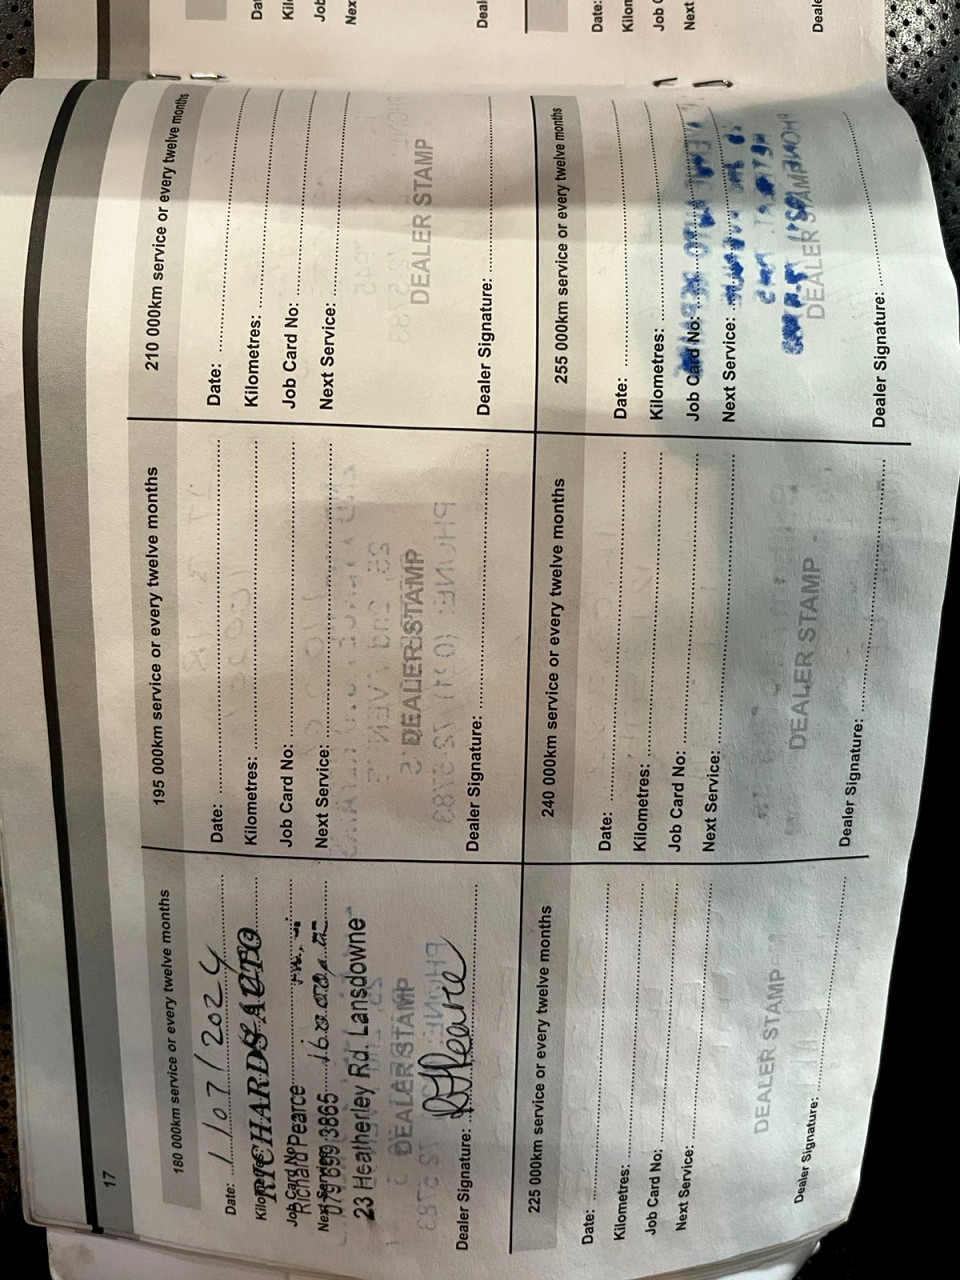 17
180 000km service or every twelve months
Date: 1/07/2024
Kilometres:
RICHARDS AUTO
Job Card No:
Richard Pearce
Next Service:
079 699 3865
23 Heatherley Rd. Lansdowne
DEALER STAMP
Dealer Signature:
195 000km service or every twelve months
Date:
Kilometres:
Job Card No:
Next Service:
DEALER STAMP
Dealer Signature:
210 000km service or every twelve months
Date:
Kilometres:
Job Card No:
Next Service:
DEALER STAMP
Dealer Signature:
225 000km service or every twelve months
Date:
Kilometres:
Job Card No:
Next Service:
DEALER STAMP
Dealer Signature:
240 000km service or every twelve months
Date:
Kilometres:
Job Card No:
Next Service:
DEALER STAMP
Dealer Signature:
255 000km service or every twelve months
Date:
Kilometres:
Job Card No:
Next Service:
DEALER STAMP
Dealer Signature:
Date:
Job
Next
Date:
Next